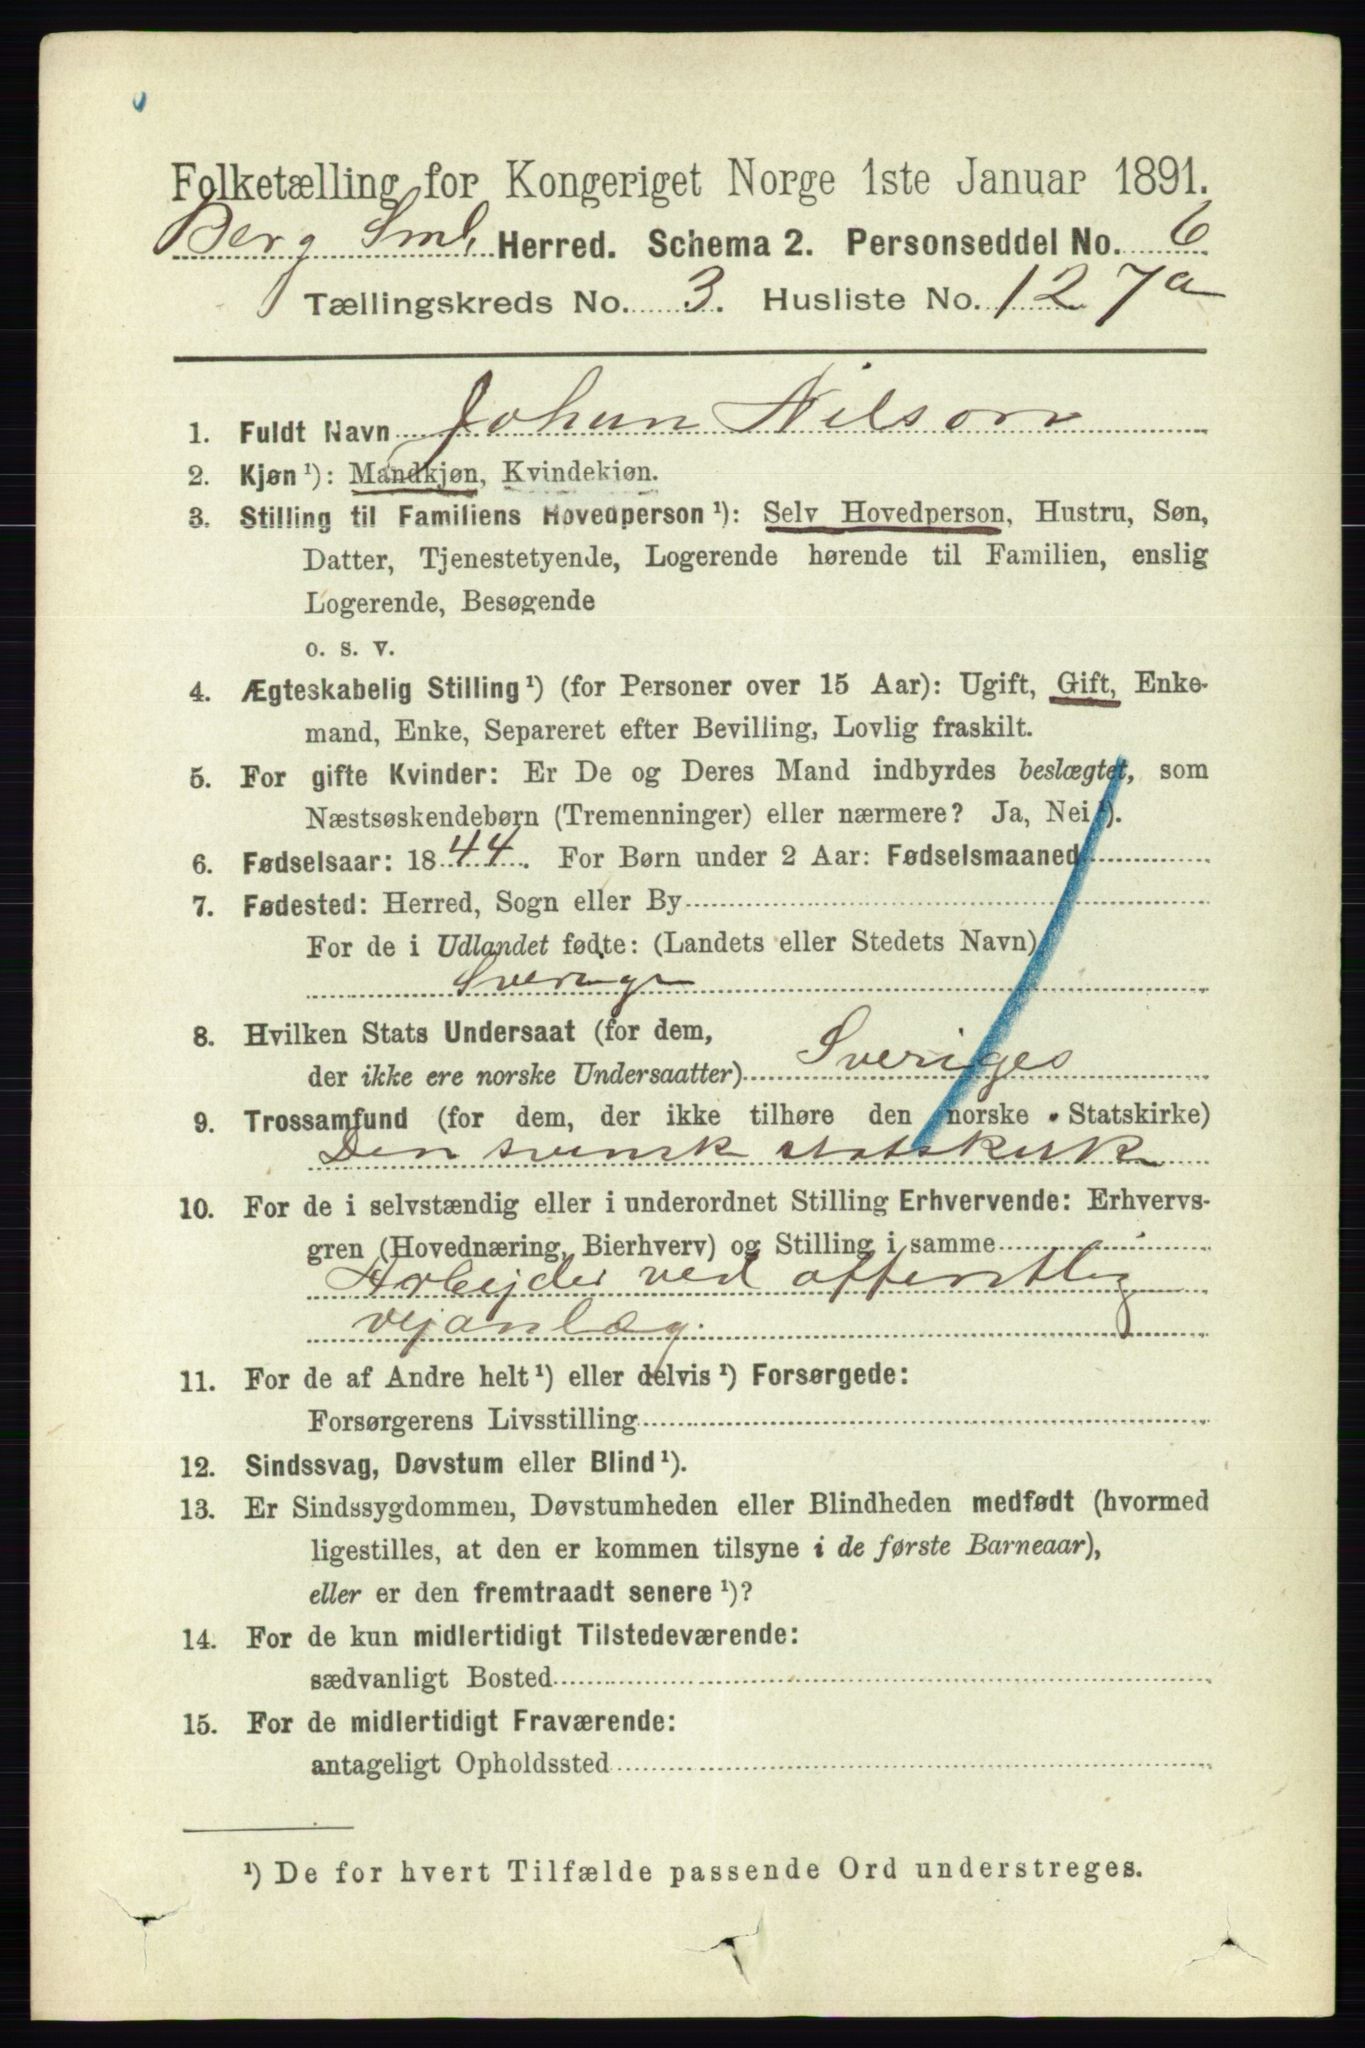 Folketælling for Kongeriget Norge 1ste Januar 1891.
Berg Sml. Herred. Schema 2. Personseddel No. 6
Tællingskreds No. 3. Husliste No. 127a
1. Fuldt Navn Johan Nilson
2. Kjøn ¹): Mandkjøn, Kvindekjøn.
3. Stilling til Familiens Hovedperson ¹): Selv Hovedperson, Hustru, Søn,
Datter, Tjenestetyende, Logerende hørende til Familien, enslig
Logerende, Besøgende
o. s. v.
4. Ægteskabelig Stilling ¹) (for Personer over 15 Aar): Ugift, Gift, Enke-
mand, Enke, Separeret efter Bevilling, Lovlig fraskilt.
5. For gifte Kvinder: Er De og Deres Mand indbyrdes beslægtet, som
Næstsøskendebørn (Tremenninger) eller nærmere? Ja, Nei ¹).
6. Fødselsaar: 1844. For Børn under 2 Aar: Fødselsmaaned
7. Fødested: Herred, Sogn eller By
For de i Udlandet fødte: (Landets eller Stedets Navn)
Sverige
8. Hvilken Stats Undersaat (for dem,
der ikke ere norske Undersaatter) Sveriges
9. Trossamfund (for dem, der ikke tilhøre den norske Statskirke)
Den svensk statskirk
10. For de i selvstændig eller i underordnet Stilling Erhvervende: Erhvervs-
gren (Hovednæring, Bierhverv) og Stilling i samme
Arbejder ved offentlig
vejanlæg.
11. For de af Andre helt ¹) eller delvis ¹) Forsørgede:
Forsørgerens Livsstilling
12. Sindssvag, Døvstum eller Blind ¹).
13. Er Sindssygdommen, Døvstumheden eller Blindheden medfødt (hvormed
ligestilles, at den er kommen tilsyne i de første Barneaar),
eller er den fremtraadt senere ¹)?
14. For de kun midlertidigt Tilstedeværende:
sædvanligt Bosted
15. For de midlertidigt Fraværende:
antageligt Opholdssted
¹) De for hvert Tilfælde passende Ord understreges.